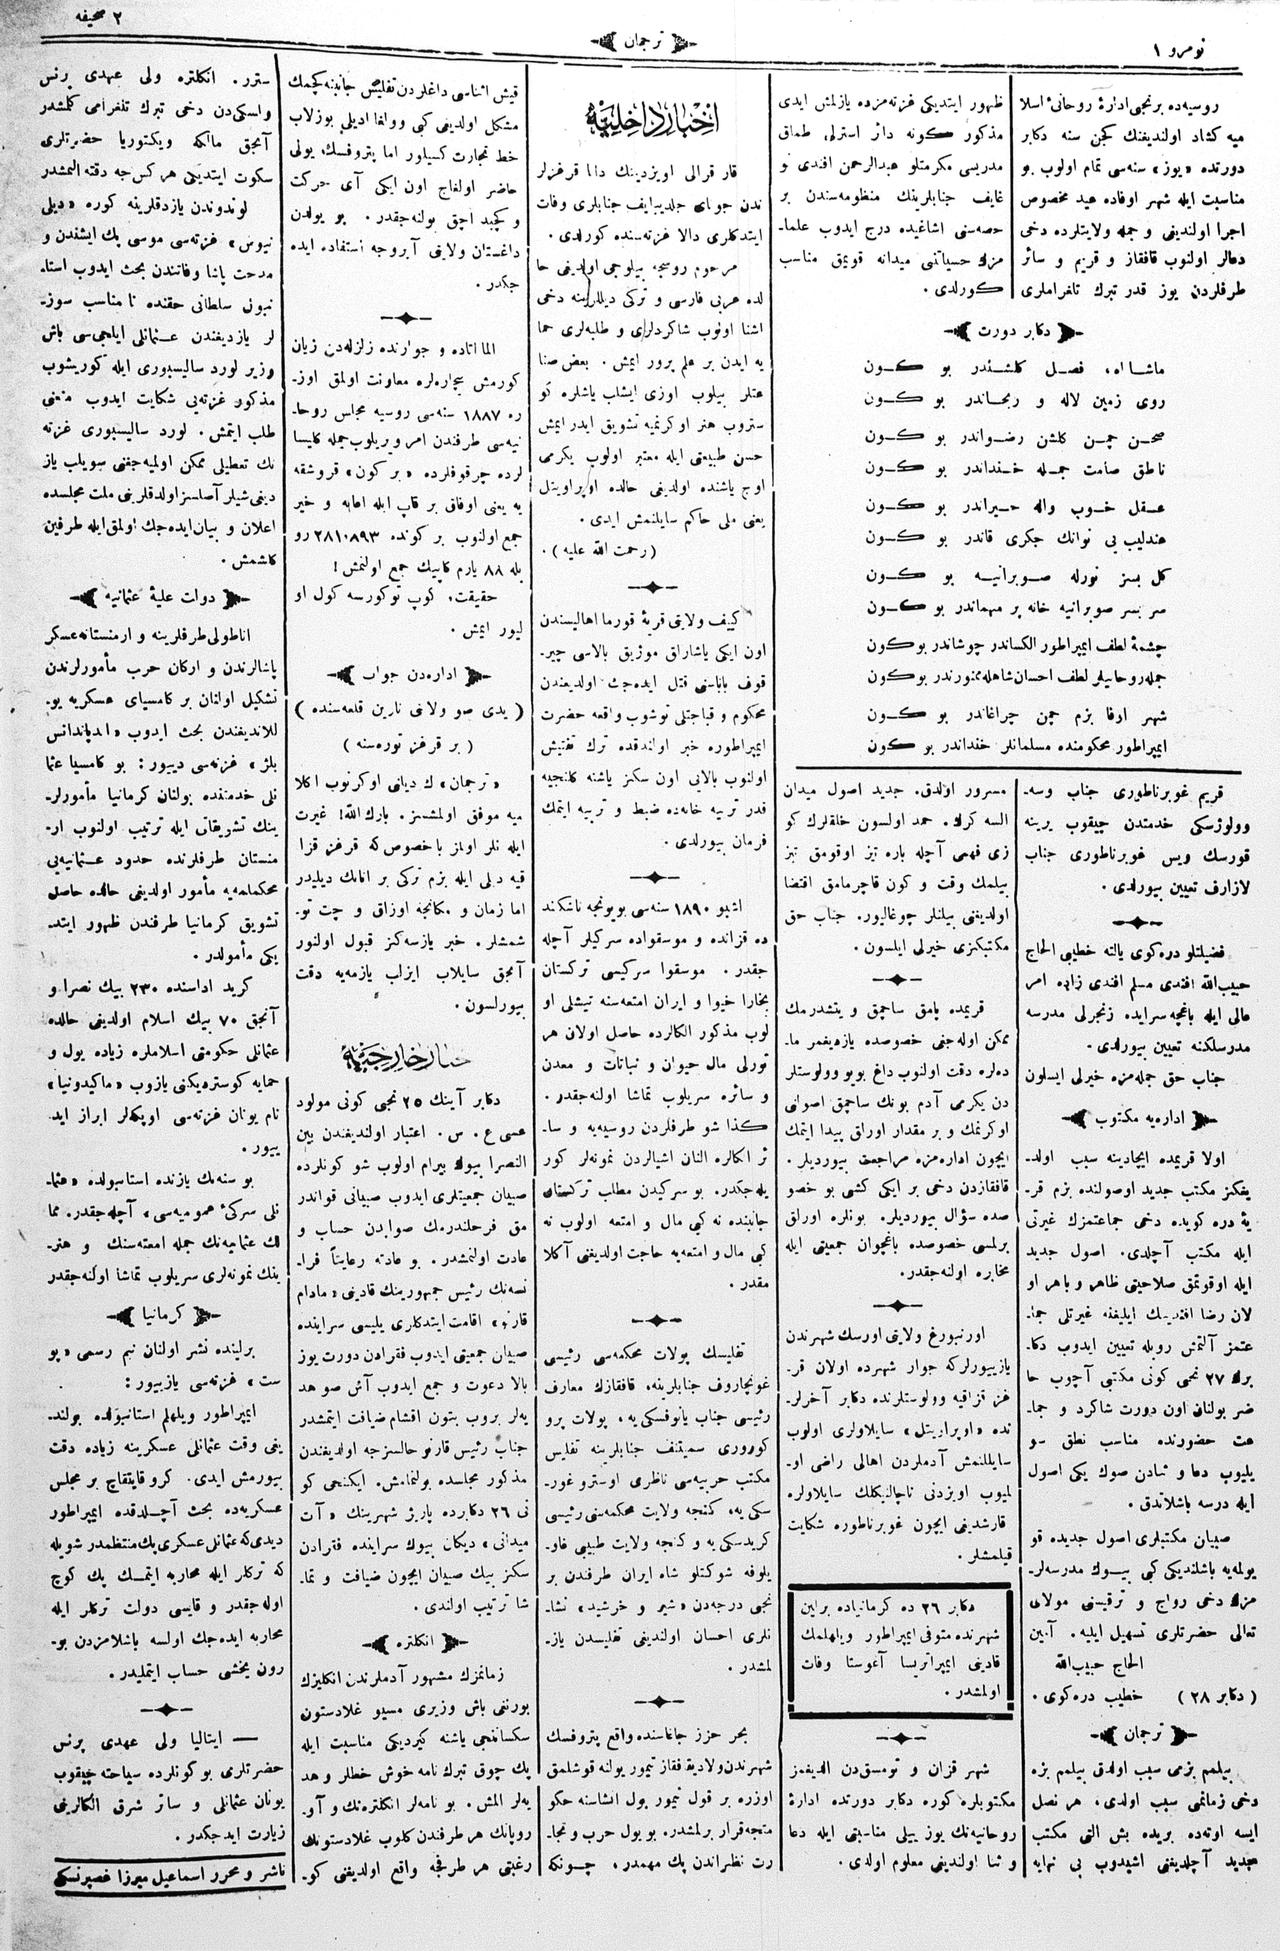 نومرو ١
ترجمان
٢ صحیفه
روسیه‌ده برنجی ادارۀ روحانیۀ اسلا
میه کشاد اولندیفنك کچن سنه دکابر
دورتده «یوز» سنه‌سی تمام اولوب بو
مناسبت ایله شهر اوفاده عید مخصوص
اجرا اولندیفی و جمله ولایتلرده دخی
دعالر اولنوب قافقاز و قریم و سائر
طرفلردن یوز قدر تبرك تلغراملری
ظهور ایتدیکی غزته‌مزده یازلمش ایدی
مذکور کونه دائر استرلی طماق
مدرسی مکرمتلو عبدالرحمن افندی نو
غایف جنابلرینك منظومه‌سندن بر
حصه‌سنی اشاغیده درج ایدوب علما‌ـ
مزك حسیاتنی میدانه قویمق مناسب
کورلدی .
دکابر دورت
ماشا اه، فصل کلشندر بو کون
روی زمین لاله و ریحاندر بو کون
صحن چمن کلشن رضواندر بو کون
ناطق صامت جمله خنداندر بو کون
عقل خوب واله حیراندر بو کون
عندلیب بی نوانك جکری قاندر بو کون
کل بسز نورله صوبرانیه بو کون
سر بسر صوبرانیه خانه پر مهماندر بو کون
چشمۀ لطف ایمپراطور الکساندر جوشاندر بوکون
جمله روحانیلر لطف احسان شاهله ممنوندر بوکون
شهر اوفا بزم چمن چراغاندر بو کون
ایمپراطور محکومنده مسلمانلر خنداندر بو کون
قریم غوبرناطوری جناب وسه‌ـ
وولوژسکی خدمتدن چیقوب یرینه
قورسك ویس غوبرناطوری جناب
لازارف تعیین بیورلدی .
فضیلتلو دره‌کوی یالته خطیبی الحاج
حبیب‌الله افندی مسلم افندی زاده امر
عالی ایله باغچه‌سرایده زنجرلی مدرسه
مدرسلکنه تعیین بیورلدی .
جناب حق جمله‌مزه خیرلی ایسلون
اداره‌یه مکتوب
اولا قریمده ایجادینه سبب اولد‌ـ
یفکز مکتب جدید اوصولنده بزم قر‌ـ
یۀ دره کویده دخی جماعتمزك غیرتی
ایله مکتب آچلدی. اصول جدید
ایله اوقوتمق صلاحیتی ظاهر و باهر او
لان رضا افندینك ایلیفنه غیرتلی جما‌ـ
عتمز آلتمش روبله تعیین ایدوب دکا‌ـ
برك ٢٧ نجی کونی مکتبی آچوب حا
ضر بولنان اون دورت شاکرد و جما‌ـ
عت حضورنده مناسب نطق سو
یلیوب دعا و ثنادن صوك یکی اصول
ایله درسه باشلاندق .
صبیان مکتبلری اصول جدیده قو
یولمه‌یه باشلندیکی کبی بیوك مدرسه‌لر‌ـ
مزك دخی رواج و ترقیسنی مولای
تعالی حضرتلری تسهیل ایلیه. آمین
الحاج حبیب‌الله
( دکابر ٢٨ ) خطیب دره‌کوی .
ترجمان
بیلمم بزمی سبب اولدق بیلمم بزه
دخی زمانمی سبب اولدی، هر نصل
ایسه اوته‌ده بریده بش التی مکتب
جدید آچلدیفنی اشیدوب بی نهایه
مسرور اولدق. جدید اصول میدان
السه کرك. حمد اولسون خلقلرك کو
زی فهمی آچله باره تیز اوقومق تیز
بیلمك وقت و کون قاچرمامق اقتضا
اولدیغنی بیلنلر چوغالیور. جناب حق
مکتبکزی خیرلی ایلسون .
قریمده پامق ساچمق و یتشدرمك
ممکن اوله‌جنی خصوصده یازدیفمز ما‌ـ
ده‌لره دقت اولنوب داغ بویو وولوستلر
دن یکرمی آدم بونك ساچمق اصولنی
اوکرنمك و بر مقدار اوراق پیدا ایتمك
ایچون اداره‌مزه مراجعت بیوردیلر .
قافقازدن دخی بر ایکی کشی بو خصو
صده سؤال بیوردیلر. بونلره اوراق
برلمسی خصوصده باغچوان جمعیتی ایله
مخابره اولنه‌جقدر .
اورنبورغ ولایتی اورسك شهرندن
یازیبورلرکه جوار شهرده اولان قر‌ـ
غز قزاقیه وولوستلرنده دکابر آخرلر‌ـ
نده «اوپراویتل» سایلاولری اولوب
سایلانمش آدملردن اهالی راضی او‌ـ
لمیوب اویزدنی ناچالنیکلك سایلاولره
قارشدیغی ایچون غوبرناطوره شکایت
قیلمشلر .
دکابر ٢٦ ده کرمانیاده برلین
شهرنده متوفی ایمپراطور ویلهلمك
قادینی ایمپراتریسا آغوستا وفات
اولمشدر .
شهر قزان و تومسق‌دن الدیغمز
مکتوبلره کوره دکابر دورتده ادارۀ
روحانیه‌نك یوز ییلی مناسبتی ایله دعا
و ثنا اولندیغی معلوم اولدی .
اخبار داخلیه
قار قرالی اویزدینك دالا قرغزلر
ندن جومای جلدبرایف جنابلری وفات
ایتدکلری دالا غزته‌سنده کورلدی .
مرحوم روسجه بیلوجی اولدیغی حا
لده عربی فارسی و ترکی دیللرینه دخی
اشنا اولوب شاکردلری و طلبه‌لری حما
یه ایدن بر علم پرور ایمش . بعض صنا
عتلر بیلوب اوزی ایشلب یاشلره کو
ستروب هنر اوکرنمیه تشویق ایدر ایمش
حسن طبیعتی ایله معتبر اولوب یکرمی
اوچ یاشنده اولدیغی حالده اوپراویتل
یعنی ملی حاکم سایلنمش ایدی .
(رحمت الله علیه) .
کییف ولایتی قریۀ قورما اهالیسندن
اون ایکی یاشاراق موژیق بالاسی چیر‌ـ
قوف باباسنی قتل ایده‌جك اولدیغندن
محکوم و قباحتلی توشوب واقعه حضرت
ایمپراطوره خبر اولندقده ترك تفتیش
اولنوب بالانی اون سکز یاشنه کلنجیه
قدر تربیه خانه‌ده ضبط و تربیه ایتمك
فرمان بیورلدی .
اشبو ١٨٩٠ سنه‌سی بویونجه تاشکند
ده قزانده و موسقواده سرکیلر آچله
جقدر . موسقوا سرکیسی ترکستان
بخارا خیوا و ایران امتعه‌سنه تیشلی او
لوب مذکور الکالرده حاصل اولان هر
تورلی مال حیوان و نباتات و معدن
و سائره سریلوب تماشا اولنه‌جقدر .
کذا شو طرفلردن روسیه‌یه و سا‌ـ
ئر الکالره النان اشیالردن نمونه‌لر کور
یله‌جکدر. بو سرکیدن مطلب ترکستان
جانبنده نه کبی مال و امتعه اولوب نه
کبی مال و امتعه‌یه حاجت اولدیفنی آکلا
مقدر .
تفلیسك پولات محکمه‌سی رئیسی
غونچاروف جنابلرینه، قافقازك معارف
رئیسی جناب یانوفسکی یه، پولات پرو
کوروری سمیتنف جنابلرینه تفلیس
مکتب حربیه‌سی ناظری اوسترو غور‌ـ
سکی یه، کنجه ولایت محکمه‌سنی رئیسی
کریدسکی یه و کنجه ولایت طبیبی فاو‌ـ
یلوفه شوکتلو شاه ایران طرفندن بر
نجی درجه‌دن «شیر و خرشید» نشا‌ـ
نلری احسان اولندیغی تفلیسدن یاز‌ـ
لمشدر .
بحر حزز جاغاسنده واقع پتروفسك
شهرندن ولادیقفقاز تیمور یولنه قوشلمق
اوزره بر قول تیمور یول انشاسنه حکو
متجه قرار برلمشدر. بو یول حرب و تجا‌ـ
رت نظراندن پك مهمدر، چونکه
قیش اثناسی داغلردن تفلیس جانبنه کچمك
مشکل اولدیفی کبی وولغا ادیلی بوزلاب
خط تجارت کسیلور اما پتروفسك یولی
حاضر اولغاج اون ایکی آی حرکت
و کچید اچق بولنه‌جقدر . بو یولدن
داغستان ولایی آیروجه استفاده ایده
جکدر .
الماتاده و جوارنده زلزله‌دن زیان
کورمش بیچاره‌لره معاونت اولمق اوز‌ـ
ره ١٨٨٧ سنه‌سی روسیه مجلس روحا‌ـ
نیه‌سی طرفندن امر ویریلوب جمله کلیسا
لرده چرقوفلرده «بر کون» قروشقه
یه یعنی اوفاق بر قاپ ایله اعانه و خیر
جمع اولنوب بر کونده ٢٨١٠٨٩٣ رو
بله ٨٨ یارم کاپیك جمع اولنمش !
حقیقت، کوپ توکورسه کول او
لیور ایمش .
اداره‌دن جواب
( یدی صو ولایی نارین قلعه‌سنده )
( بر قرغز توره‌سنه )
«ترجمان» ك دیلنی اوکرنوب اکلا
میه موفق اولمشسز. بارك الله! غیرت
ایله نلر اولمز با خصوص که قرغز قزا
قیه دیلی ایله بزم ترکی بر انانك دیلیدر
اما زمان و مکانجه اوزاق و چت تو‌ـ
شمشلر. خبر یازسه‌کز قبول اولنور
آنجق سایلاب ایزلب یازمه‌یه دقت
بیورلسون .
اخبار خارجیه
دکابر آینك ٢٥ نجی کونی مولود
عسی ع . س . اعتبار اولندیغندن بین
النصرا بیوك بیرام اولوب شو کونلرده
صبیان جمعیتلری ایدوب صبیانی قواندر
مق فرحلندرمك صوابدن حساب و
عادت اولنمشدر. بو عادته رعایتاً فرا‌ـ
نسه‌نك رئیس جمهورینك قادینی «مادام
قارنو» اقامت ایتدکلری یلیسی سراینده
صبیان جمعیتی ایدوب فقرادن دورت یوز
بالا دعوت و جمع ایدوب آش صو هد
یه‌لر بروب بتون اقشام ضیافت ایتمشدر
جناب رئیس قارنو حالسزجه اولدیغندن
مذکور مجلسده بولنمامش. ایکنجی کو
نی ٢٦ دکابرده پاریژ شهرینك «آت
میدانی» دیکان بیوك سراینده فقرادن
سکز بیك صبیان ایچون ضیافت و تما‌ـ
شا ترتیب اولندی .
انکلتره
زمانمزك مشهور آدملرندن انکلیزك
بورنغی باش وزیری مسیو غلادستون
سکسانجی یاشنه کیردیکی مناسبت ایله
پك چوق تبرك نامه خوش خطلر و هد
یه‌لر المش. بو نامه‌لر انکلتره‌نك و آو‌ـ
روپانك هر طرفندن کلوب غلادستونك
رغبتی هر طرفجه واقع اولدیفنی کو‌ـ
سترر. انکلتره ولی عهدی پرنس
والسکی‌دن دخی تبرك تلغرامی کلمشدر
آنجق ملکه ویکتوریا حضرتلری
سکوت ایتدیکی هر کس‌جه دقته النمشدر
لوندوندن یازدقلرینه کوره «دیلی
نیوس» غزته‌سی موسی بك ایشندن و
مدحت پاشا وفاتندن بحث ایدوب استا‌ـ
نبول سلطانی حقنده نا مناسب سوز‌ـ
لر یازدیفندن عثمانلی ایلچی‌سی باش
وزیر لورد سالیسبوری ایله کوریشوب
مذکور غزته‌یی شکایت ایدوب منعنی
طلب ایتمش. لورد سالیسبوری غزته
نك تعطیلی ممکن اولمیه‌جفنی سویلب یاز
دیغی شیلر آصلسز اولدقلرینی ملت مجلسده
اعلان و بیان ایده‌جك اولمق ایله طرفین
کلشمش .
دولت علیۀ عثمانیه
اناطولی طرفلرینه و ارمنستانه عسکر
پاشالرندن و ارکان حرب مأمورلرندن
تشکیل اولنان بر کامسیای عسکریه یو‌ـ
للاندیغندن بحث ایدوب «اندپاندانس
بلژ» غزته‌سی دیبور: بو کامسیا عثما
نلی خدمتنده بولنان کرمانیا مأمورلر‌ـ
ینك تشریقاتی ایله ترتیب اولنوب ار‌ـ
منستان طرفلرنده حدود عثمانیه‌یی
محکملمه‌یه مأمور اولدیفی حالده حاصل
تشویق کرمانیا طرفندن ظهور ایتد‌ـ
یکی مأمولدر .
کرید اداسنده ٢٣٠ بیك نصرا و
آنجق ٧٠ بیك اسلام اولدیفی حالده
عثمانلی حکومتی اسلاملره زیاده یول و
حمایه کوستردیکنی یازوب «ماکیدونیا»
نام یونان غزته‌سی اوپکه‌لر ابراز اید
یبور .
بو سنه‌نك یازنده استانبولده «عثما‌ـ
نلی سرکیٔ عمومیه‌سی» آچله‌جقدر. مما
لك عثمانیه‌نك جمله امتعه‌سنك و هنر‌ـ
ینك نمونه‌لری سریلوب تماشا اولنه‌جقدر
کرمانیا
برلینده نشر اولنان نیم رسمی «پو
ست» غزته‌سی یازیبور :
ایمپراطور ویلهلم استانبولده بولند‌ـ
یغی وقت عثمانلی عسکرینه زیاده دقت
بیورمش ایدی. کرو قایتقاچ بر مجلس
عسکریه‌ده بحث آچلدقده ایمپراطور
دیدی که عثمانلی عسکری پك منتظمدر شویله
که ترکلر ایله محاربه ایتمك پك کوچ
اوله‌جقدر و قایسی دولت ترکلر ایله
محاربه ایده‌جك اولسه باشلامزدن بو‌ـ
رون یخشی حساب ایتملیدر .
— ایتالیا ولی عهدی پرنس
حضرتلری بو کونلرده سیاحته چیقوب
یونان عثمانلی و سائر شرق الکالرینی
زیارت ایده‌جکدر .
ناشر و محرر اسماعیل میرزا غصپرنسکی